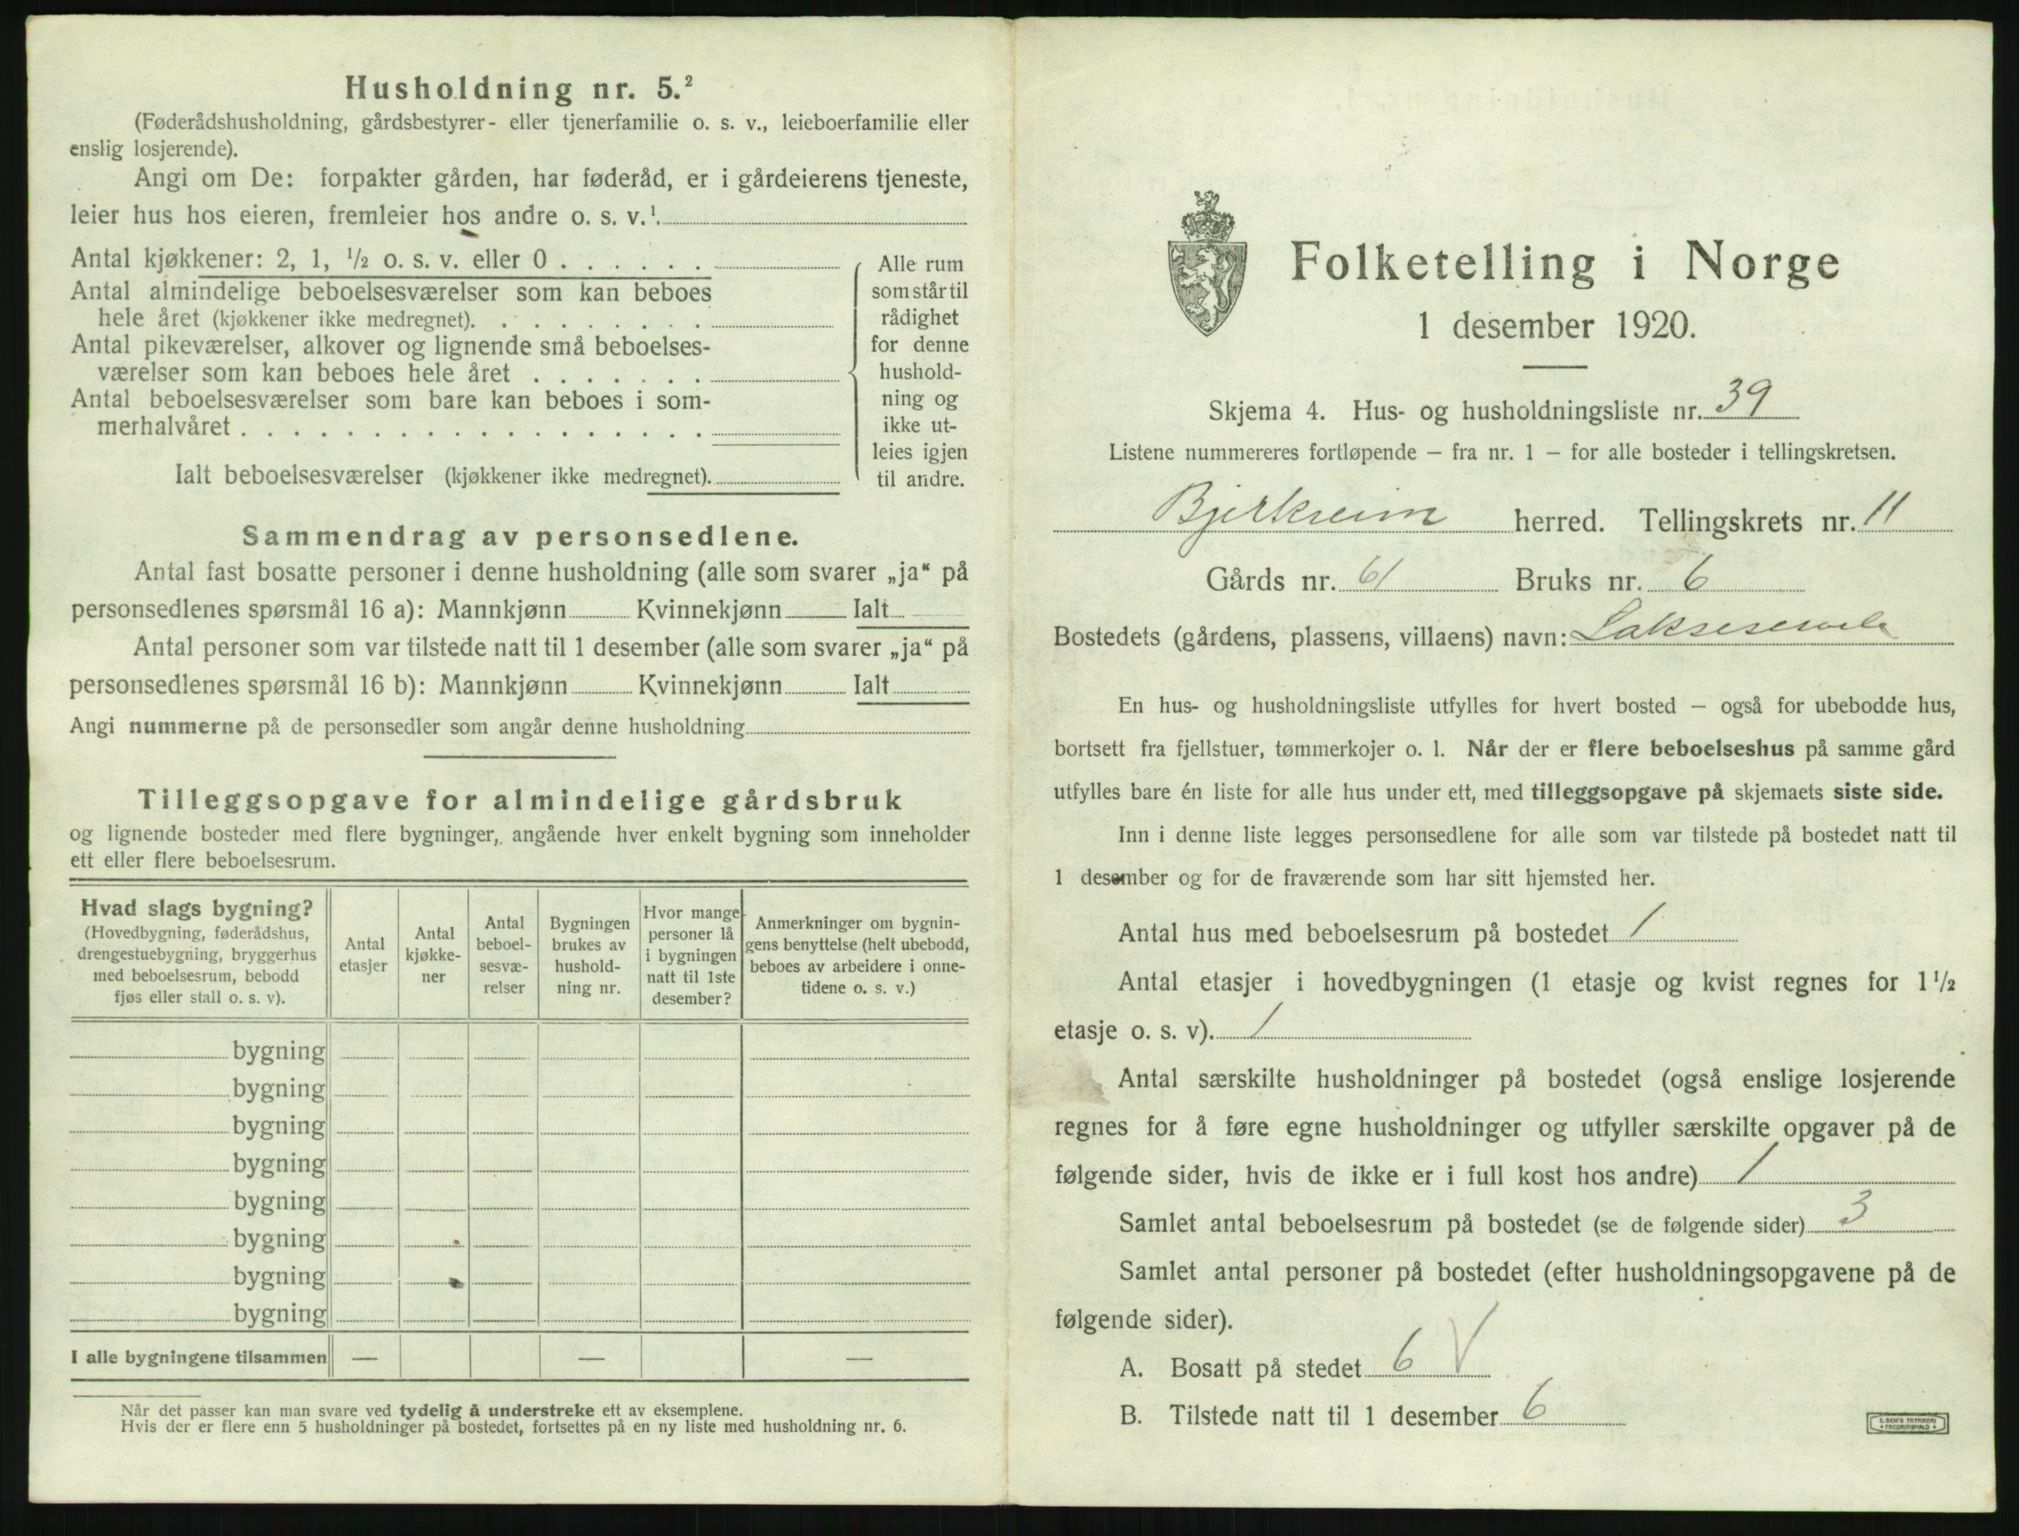 Husholdning nr. 5.²
(Føderådshusholdning, gårdsbestyrer- eller tjenerfamilie o. s. v., leieboerfamilie eller
enslig losjerende).
Angi om De: forpakter gården, har føderåd, er i gårdeierens tjeneste,
leier hus hos eieren, fremleier hos andre o. s. v.¹
Antal kjøkkener: 2, 1, ½ o. s. v. eller 0 . . . . . .
Antal almindelige beboelsesværelser som kan beboes
hele året (kjøkkener ikke medregnet). . . . . . . . .
Antal pikeværelser, alkover og lignende små beboelses-
værelser som kan beboes hele året . . . . . . .
Antal beboelsesværelser som bare kan beboes i som-
merhalvåret . . . . . . . . . . . . . . . . . .
Ialt beboelsesværelser (kjøkkener ikke medregnet).
Alle rum
som står til
rådighet
for denne
hushold-
ning og
ikke ut-
leies igjen
til andre.
Sammendrag av personsedlene.
Antal fast bosatte personer i denne husholdning (alle som svarer „ja“ på
personsedlenes spørsmål 16 a): Mannkjønn Kvinnekjønn Ialt
Antal personer som var tilstede natt til 1 desember (alle som svarer „ja“ på
personsedlenes spørsmål 16 b): Mannkjønn Kvinnekjønn Ialt
Angi nummerne på de personsedler som angår denne husholdning
Tilleggsopgave for almindelige gårdsbruk
og lignende bosteder med flere bygninger, angående hver enkelt bygning som inneholder
ett eller flere beboelsesrum.
Hvad slags bygning?
(Hovedbygning, føderådshus,
drengestuebygning, bryggerhus
med beboelsesrum, bebodd
fjøs eller stall o. s. v).
Antal
etasjer
Antal
kjøkke-
ner
Antal
beboel-
sesvæ-
relser
Bygningen
brukes av
hushold-
ning nr.
Hvor mange
personer lå
i bygningen
natt til 1ste
desember?
Anmerkninger om bygnin-
gens benyttelse (helt ubebodd,
beboes av arbeidere i onne-
tidene o. s. v.)
bygning
bygning
bygning
bygning
bygning
bygning
bygning
bygning
I alle bygningene tilsammen — — —
Når det passer kan man svare ved tydelig å understreke ett av eksemplene.
Hvis der er flere enn 5 husholdninger på bostedet, fortsettes på en ny liste med husholdning nr. 6.
Folketelling i Norge
1 desember 1920.
Skjema 4. Hus- og husholdningsliste nr. 39
Listene nummereres fortløpende – fra nr. 1 – for alle bosteder i tellingskretsen.
Bjerkreim herred. Tellingskrets nr. 11
Gårds nr. 61 Bruks nr. 6
Bostedets (gårdens, plassens, villaens) navn: Laksesvela
En hus- og husholdningsliste utfylles for hvert bosted – også for ubebodde hus,
bortsett fra fjellstuer, tømmerkojer o. l. Når der er flere beboelseshus på samme gård
utfylles bare én liste for alle hus under ett, med tilleggsopgave på skjemaets siste side.
Inn i denne liste legges personsedlene for alle som var tilstede på bostedet natt til
1 desember og for de fraværende som har sitt hjemsted her.
Antal hus med beboelsesrum på bostedet 1
Antal etasjer i hovedbygningen (1 etasje og kvist regnes for 1½
etasje o. s. v). 1
Antal særskilte husholdninger på bostedet (også enslige losjerende
regnes for å føre egne husholdninger og utfyller særskilte opgaver på de
følgende sider, hvis de ikke er i full kost hos andre) 1
Samlet antal beboelsesrum på bostedet (se de følgende sider) 3
Samlet antal personer på bostedet (efter husholdningsopgavene på de
følgende sider).
A. Bosatt på stedet 6 V
B. Tilstede natt til 1 desember 6